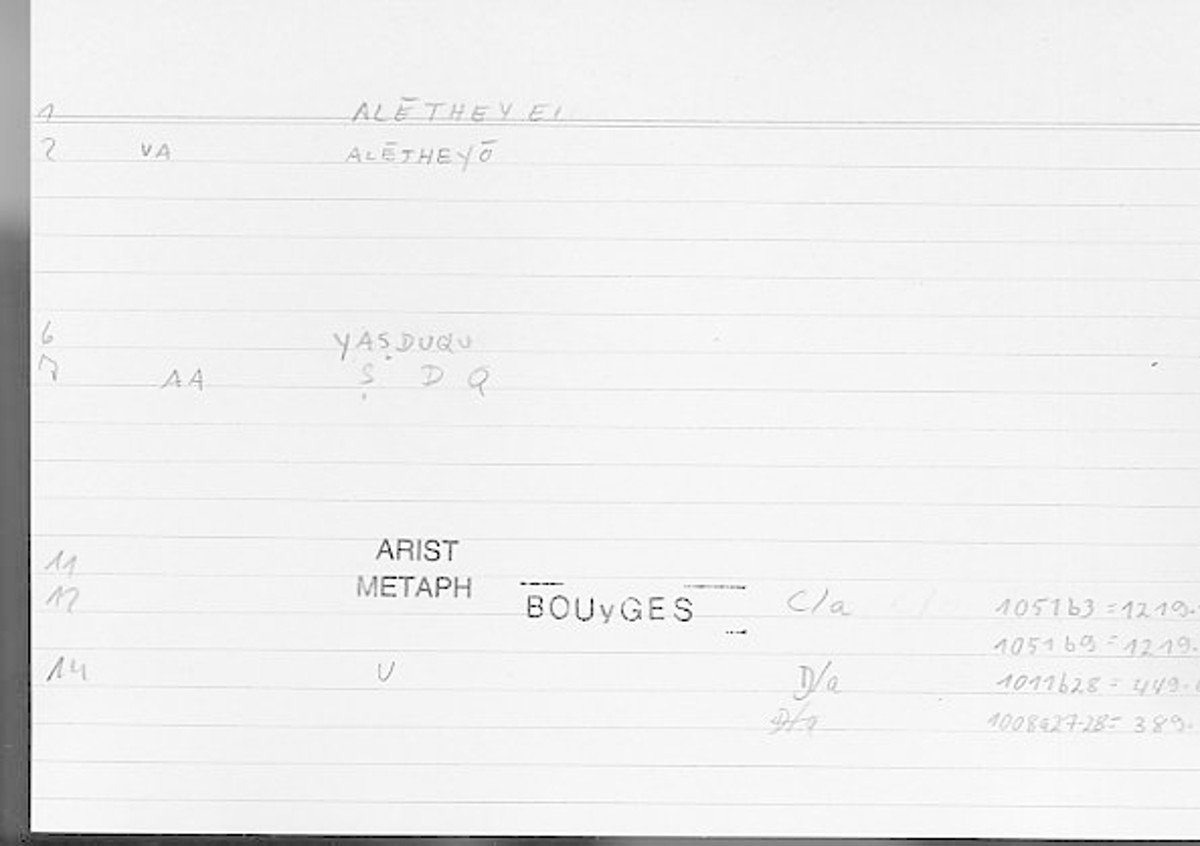 1 ALĒTHEYEI
2 VA ALĒTHEYŌ
6 YAṢDUQU
7 AA Ṣ D Q
11 ARIST
12 METAPH BOUyGES C/a 1051b3 = 1219.
1051b9 = 1219.
14 U D/a 1011b28 = 449.
D/a 1008a27-28 = 389.